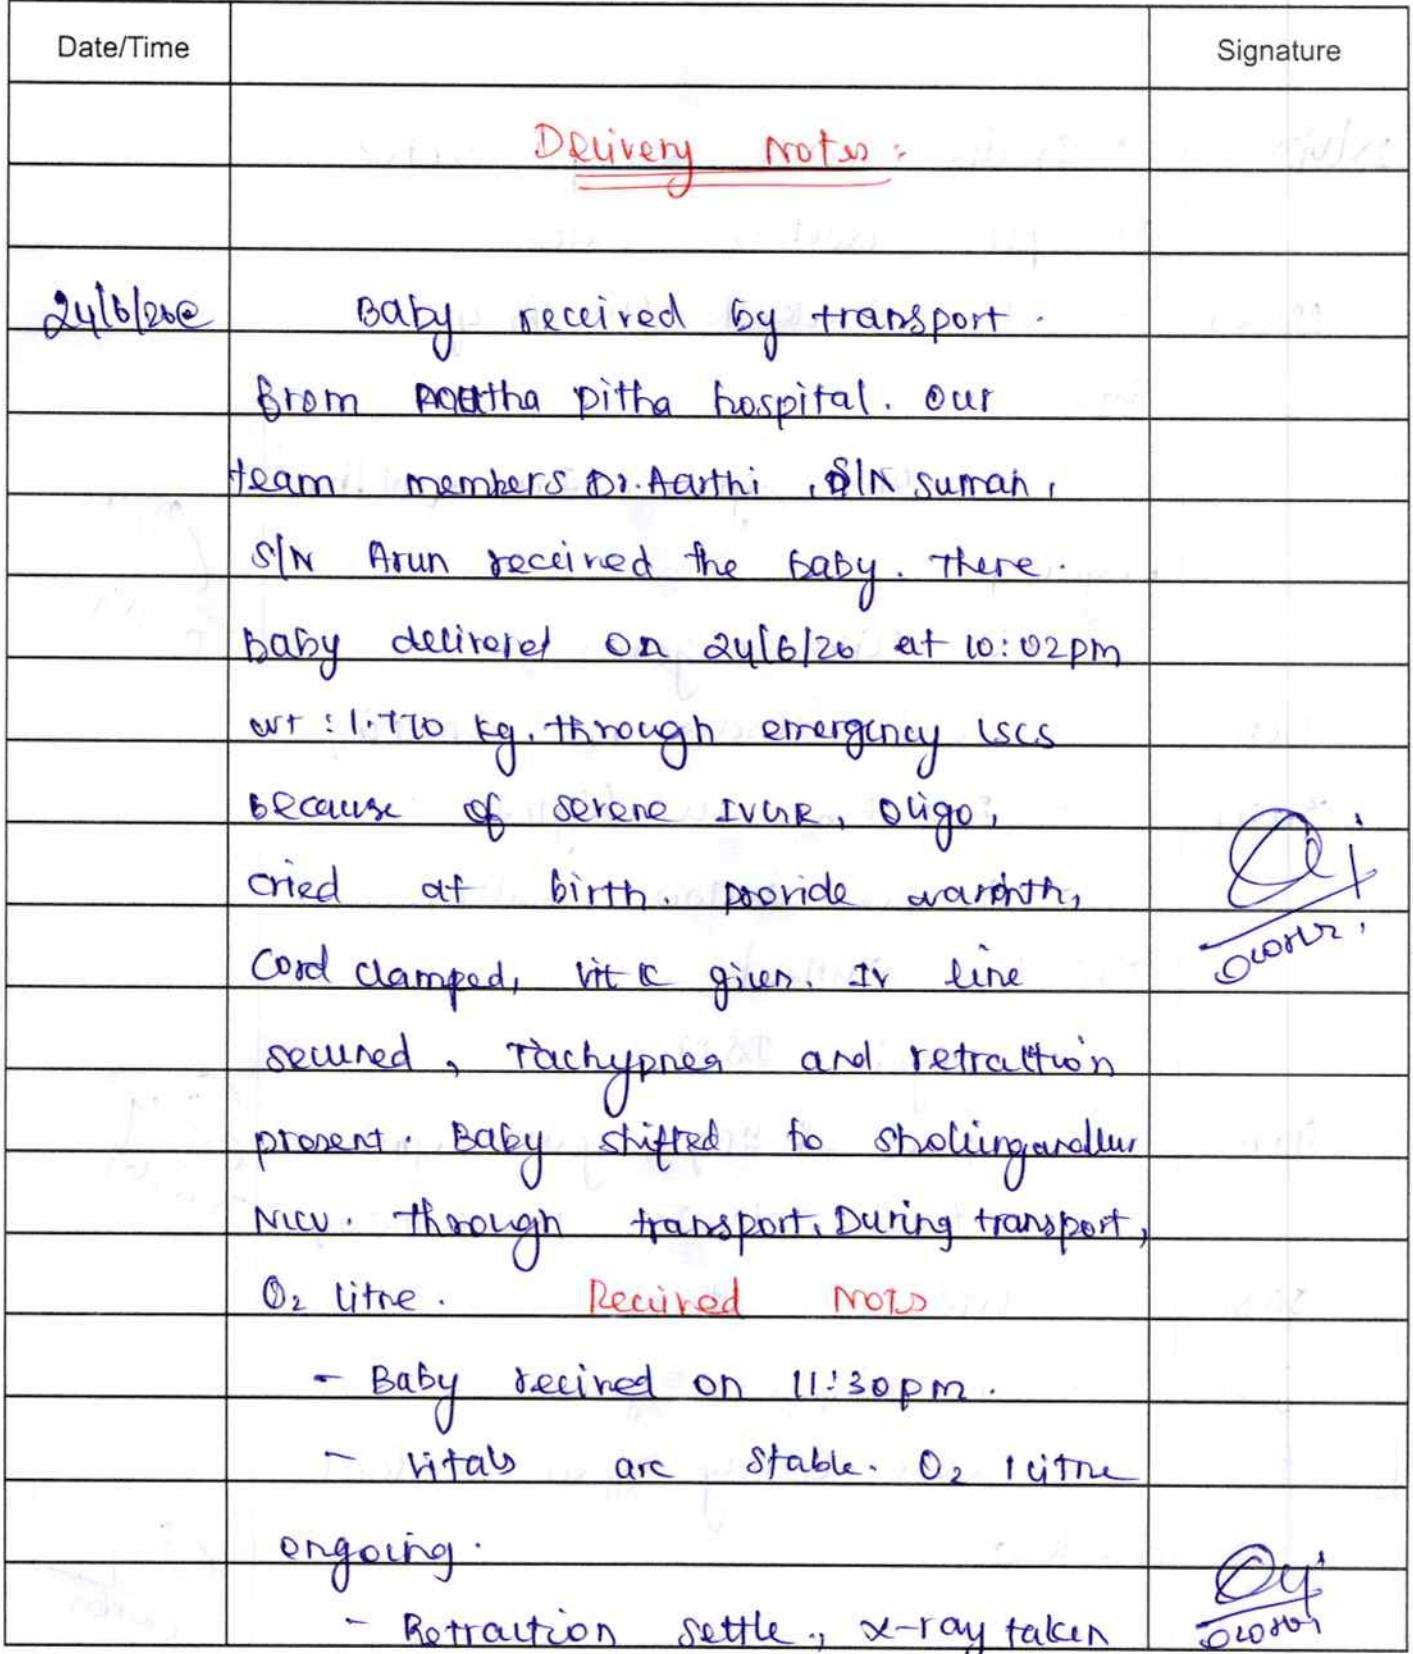 Date/Time Signature
Delivery Notes:
24/6/20@ Baby received by transport.
from Maatha pitha hospital. Our
team members Dr. Aarthi, S/N Suman,
S/N Arun received the baby. There.
Baby delivered on 24/6/20 at 10:02pm
wt: 1.770 kg. through emergency LSCS
because of severe IUGR, Oligo,
cried at birth. provide warmth,
Cord clamped, Vit K given. IV line
secured, Tachypnea and retraction
present. Baby shifted to Sholinganallur
NICU. through transport. During transport,
O2 litre. Received Notes
- Baby recived on 11:30pm.
- Vitals are stable. O2 1 litre
ongoing.
- Retraction settle., x-ray taken